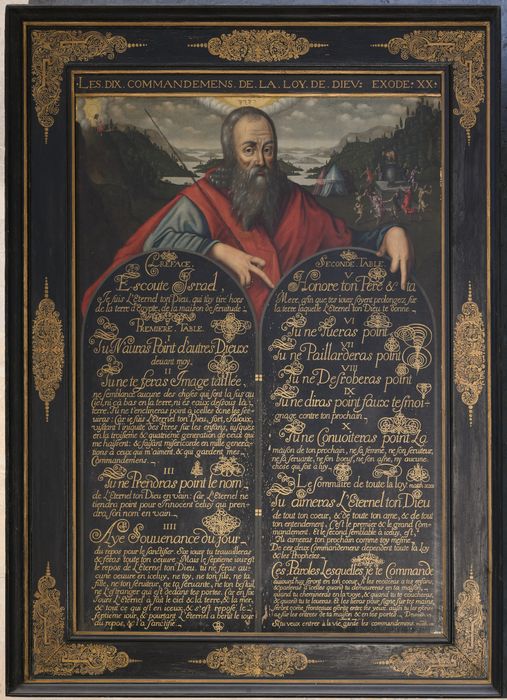 LES. DIX. COMMANDEMENS. DE. LA. LOY. DE. DIEV: EXODE: XX:
PREFACE.
Escoute Israel,
Je suis L'Eternel ton Dieu, qui t'ay tiré hors
de la terre d'Egypte, de la maison de servitude
PREMIERE. TABLE.
I
Tu N'auras Point d'autres Dieux
devant moy.
II
Tu ne te feras Image taillée,
ne semblance aucune des choses qui sont la sus au
Ciel, ni ça bas en la terre, ni es eaux dessous la
terre. Tu ne t'enclineras point a icelles & ne les ser-
viras: Car je suis L'Eternel ton Dieu, fort, & Ialoux,
visitant l'iniquité des Peres sur les enfans, jusques
en la troisieme & quatrieme generation de ceux qui
me haïssent: & faisant misericorde en mille genera-
tions a ceux qui m'aiment, & qui gardent mes
Commandemens.
III
Tu ne Prendras point le nom
de L'Eternel ton Dieu en vain: Car L'Eternel ne
tiendra point pour Innocent celuy qui pren-
dra son nom en vain.
IIII
Aye Souvenance du jour
du repos pour le sanctifier. Six jours tu travailleras
& feras toute ton oeuvre. Mais le septieme jour est
le repos de L'Eternel ton Dieu, tu ne feras au-
cune oeuvre en iceluy, ne toy, ne ton fils, ne ta
fille, ne ton serviteur, ne ta servante, ne ton bestail
ne L'estranger qui est dedans tes portes. Car en six
jours L'Eternel a fait le ciel & la terre, & la mer,
& tout ce qui est en iceux, & s'est reposé le
septieme jour, & pourtant L'Eternel a benit le jour
du repos, & l'a sanctifié.
SECONDE. TABLE.
V
Honore ton Pere & ta
Mere, afin que tes jours soyent prolongez sur
la terre laquelle L'Eternel ton Dieu te donne.
VI
Tu ne Tueras point
VII
Tu ne Paillarderas point
VIII
Tu ne Desroberas point
IX
Tu ne diras point faux tesmoi-
gnage contre ton prochain.
X
Tu ne Convoiteras point La
maison de ton prochain, ne sa femme, ne son serviteur,
ne sa servante, ne son boeuf, ne son asne, ne aucune
chose qui soit a luy.
Le sommaire de toute la loy
Tu aimeras L'Eternel ton Dieu
de tout ton coeur, & de toute ton ame, & de tout
ton entendement. C'est le premier & le grand com-
mandement. Et le second semblable a iceluy, est,
Tu aimeras ton prochain comme toy mesme.
De ces deux Commandemens dependent toute la Loy
& les Prophetes.
Ces Paroles Lesquelles je te Commande
aujourd'huy seront en ton coeur, & les enseigneras a tes enfans,
quand tu chemineras en la voye, & quand tu te coucheras,
& quand tu te leveras. Et les lieras pour signe sur tes mains,
Si tu veux entrer a la vie garde les commandemens